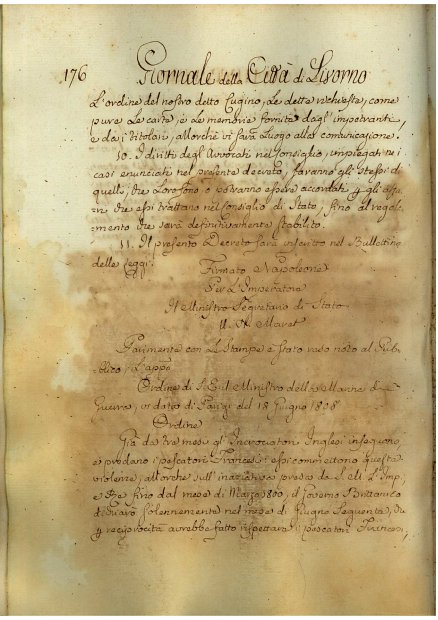 176 Giornale della Città di Livorno
L'ordine del nostro detto Cugino, Le dette richieste, come
pure Le carte, e Le memorie fornite dagl' impetranti
e da i titolari, allorchè vi sarà Luogo alla comunicazione.
10. I diritti degl' Avvocati nel Consiglio, impiegati ne i
casi enunciati nel presente decreto, saranno gli stessi di
quelli, che Loro sono o potranno essere accordati p gli affa-
ri che essi trattano nel Consiglio di Stato, fino al regola-
mento che sarà definitivamente stabilito.
11. Il presente Decreto sarà inserito nel Bullettino
delle Leggi.
Firmato Napoleone
Per L'Imperatore
Il Ministro Segretario di Stato
U. B. Maret
Parimente con Le Stampe è stato reso noto al Pub-
blico, L'appo
Ordine di S. E. il Ministro della Marina
Guerra, in data di Parigi del 18 Giugno 1808
Ordine
Già da tre mesi gl' Incrociatori Inglesi inseguono,
e predano i pescatori Francesi; essi commettono questa
violenza, allorchè sull' iniziativa presa da S. M. L'Imp.
e Re fino dal mese di Marzo 1800, il Governo Brittanico
dichiarò solennemente nel mese di Giugno seguente, che
p reciprocità avrebbe fatto rispettare i pescatori Francesi,